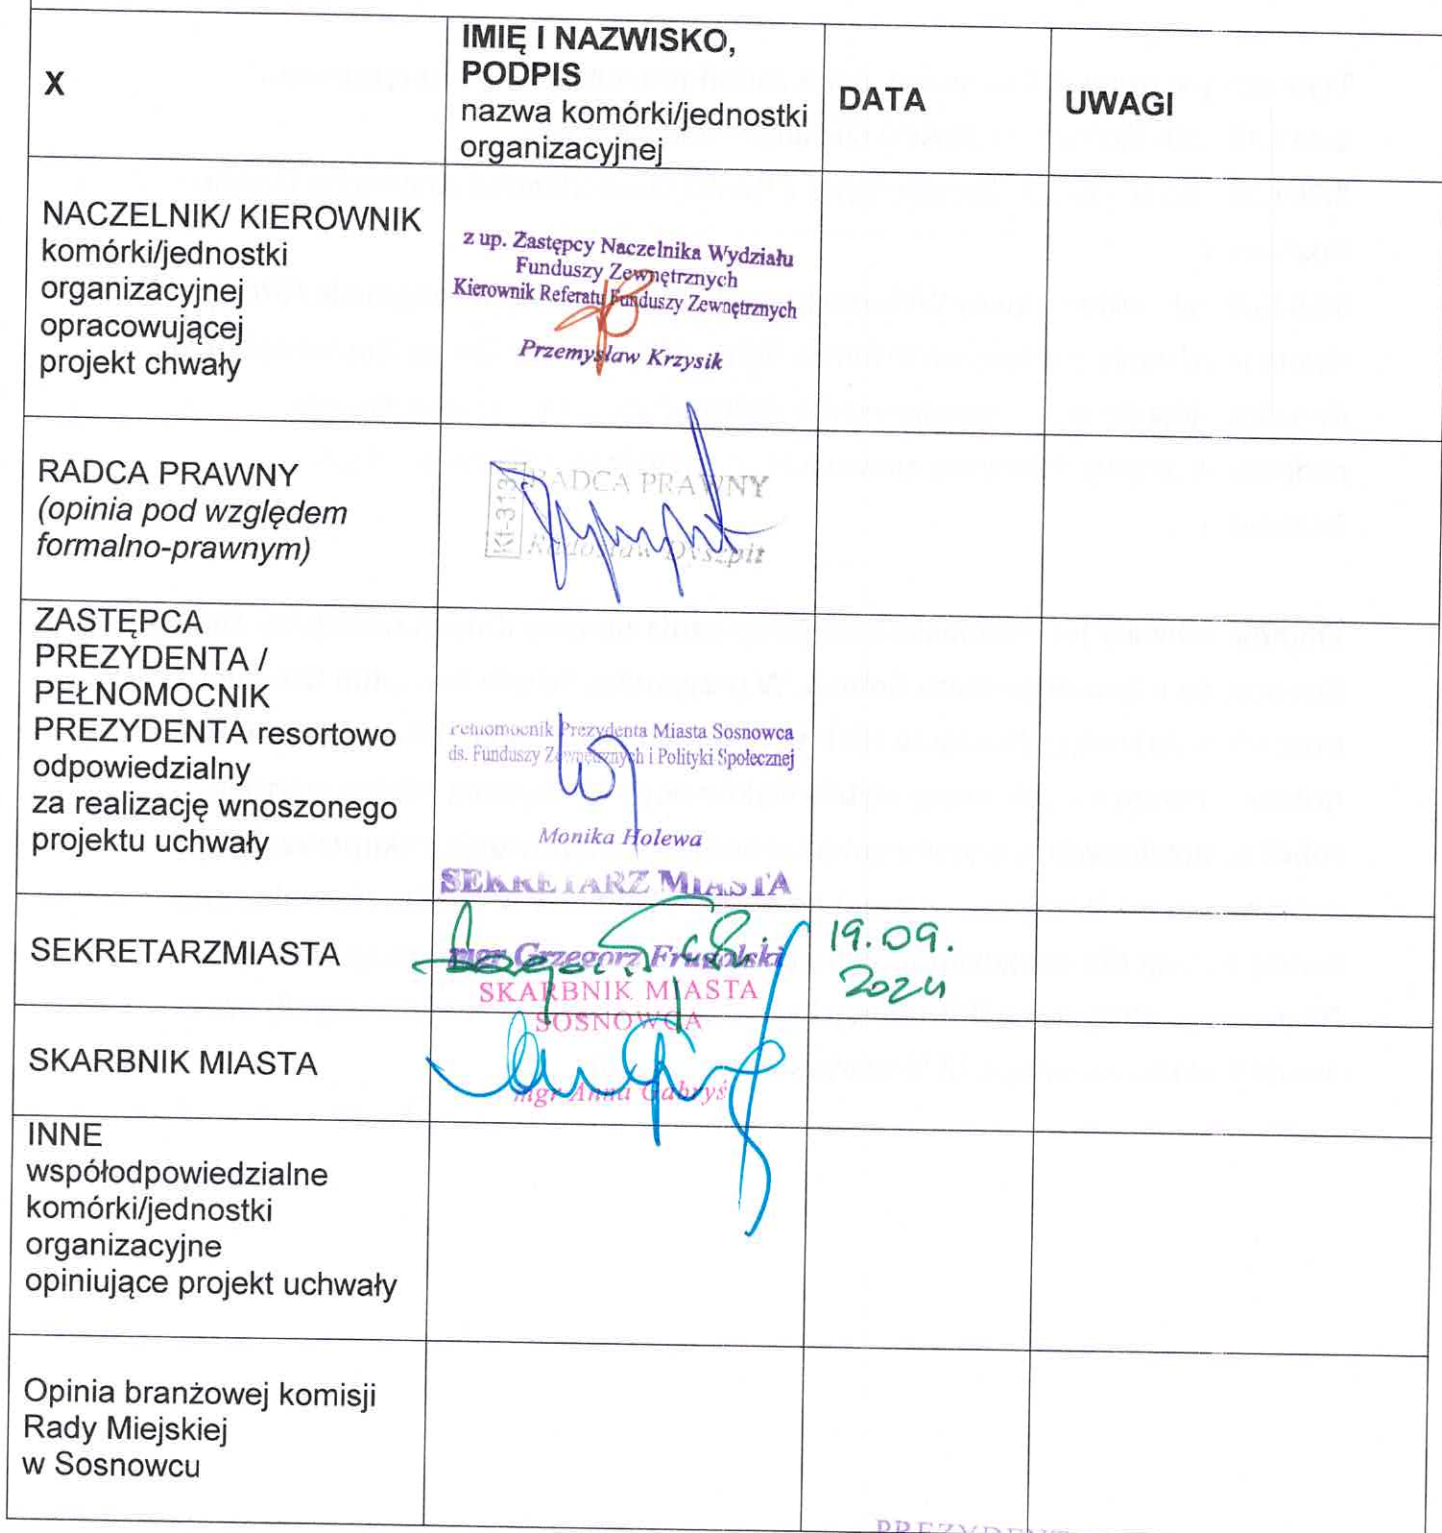 X
IMIĘ I NAZWISKO,
PODPIS
nazwa komórki/jednostki
organizacyjnej
DATA
UWAGI
NACZELNIK/ KIEROWNIK
komórki/jednostki
organizacyjnej
opracowującej
projekt chwały
z up. Zastępcy Naczelnika Wydziału
Funduszy Zewnętrznych
Kierownik Referatu Funduszy Zewnętrznych
Przemysław Krzysik
RADCA PRAWNY
(opinia pod względem
formalno-prawnym)
RADCA PRAWNY
Radosław Dyszpit
ZASTĘPCA
PREZYDENTA /
PEŁNOMOCNIK
PREZYDENTA resortowo
odpowiedzialny
za realizację wnoszonego
projektu uchwały
Pełnomocnik Prezydenta Miasta Sosnowca
ds. Funduszy Zewnętrznych i Polityki Społecznej
Monika Holewa
SEKRETARZ MIASTA
SEKRETARZMIASTA
mgr Grzegorz
19.09.
2024
SKARBNIK MIASTA
SKARBNIK MIASTA
SOSNOWCA
mgr Anna Gabryś
INNE
współodpowiedzialne
komórki/jednostki
organizacyjne
opiniujące projekt uchwały
Opinia branżowej komisji
Rady Miejskiej
w Sosnowcu